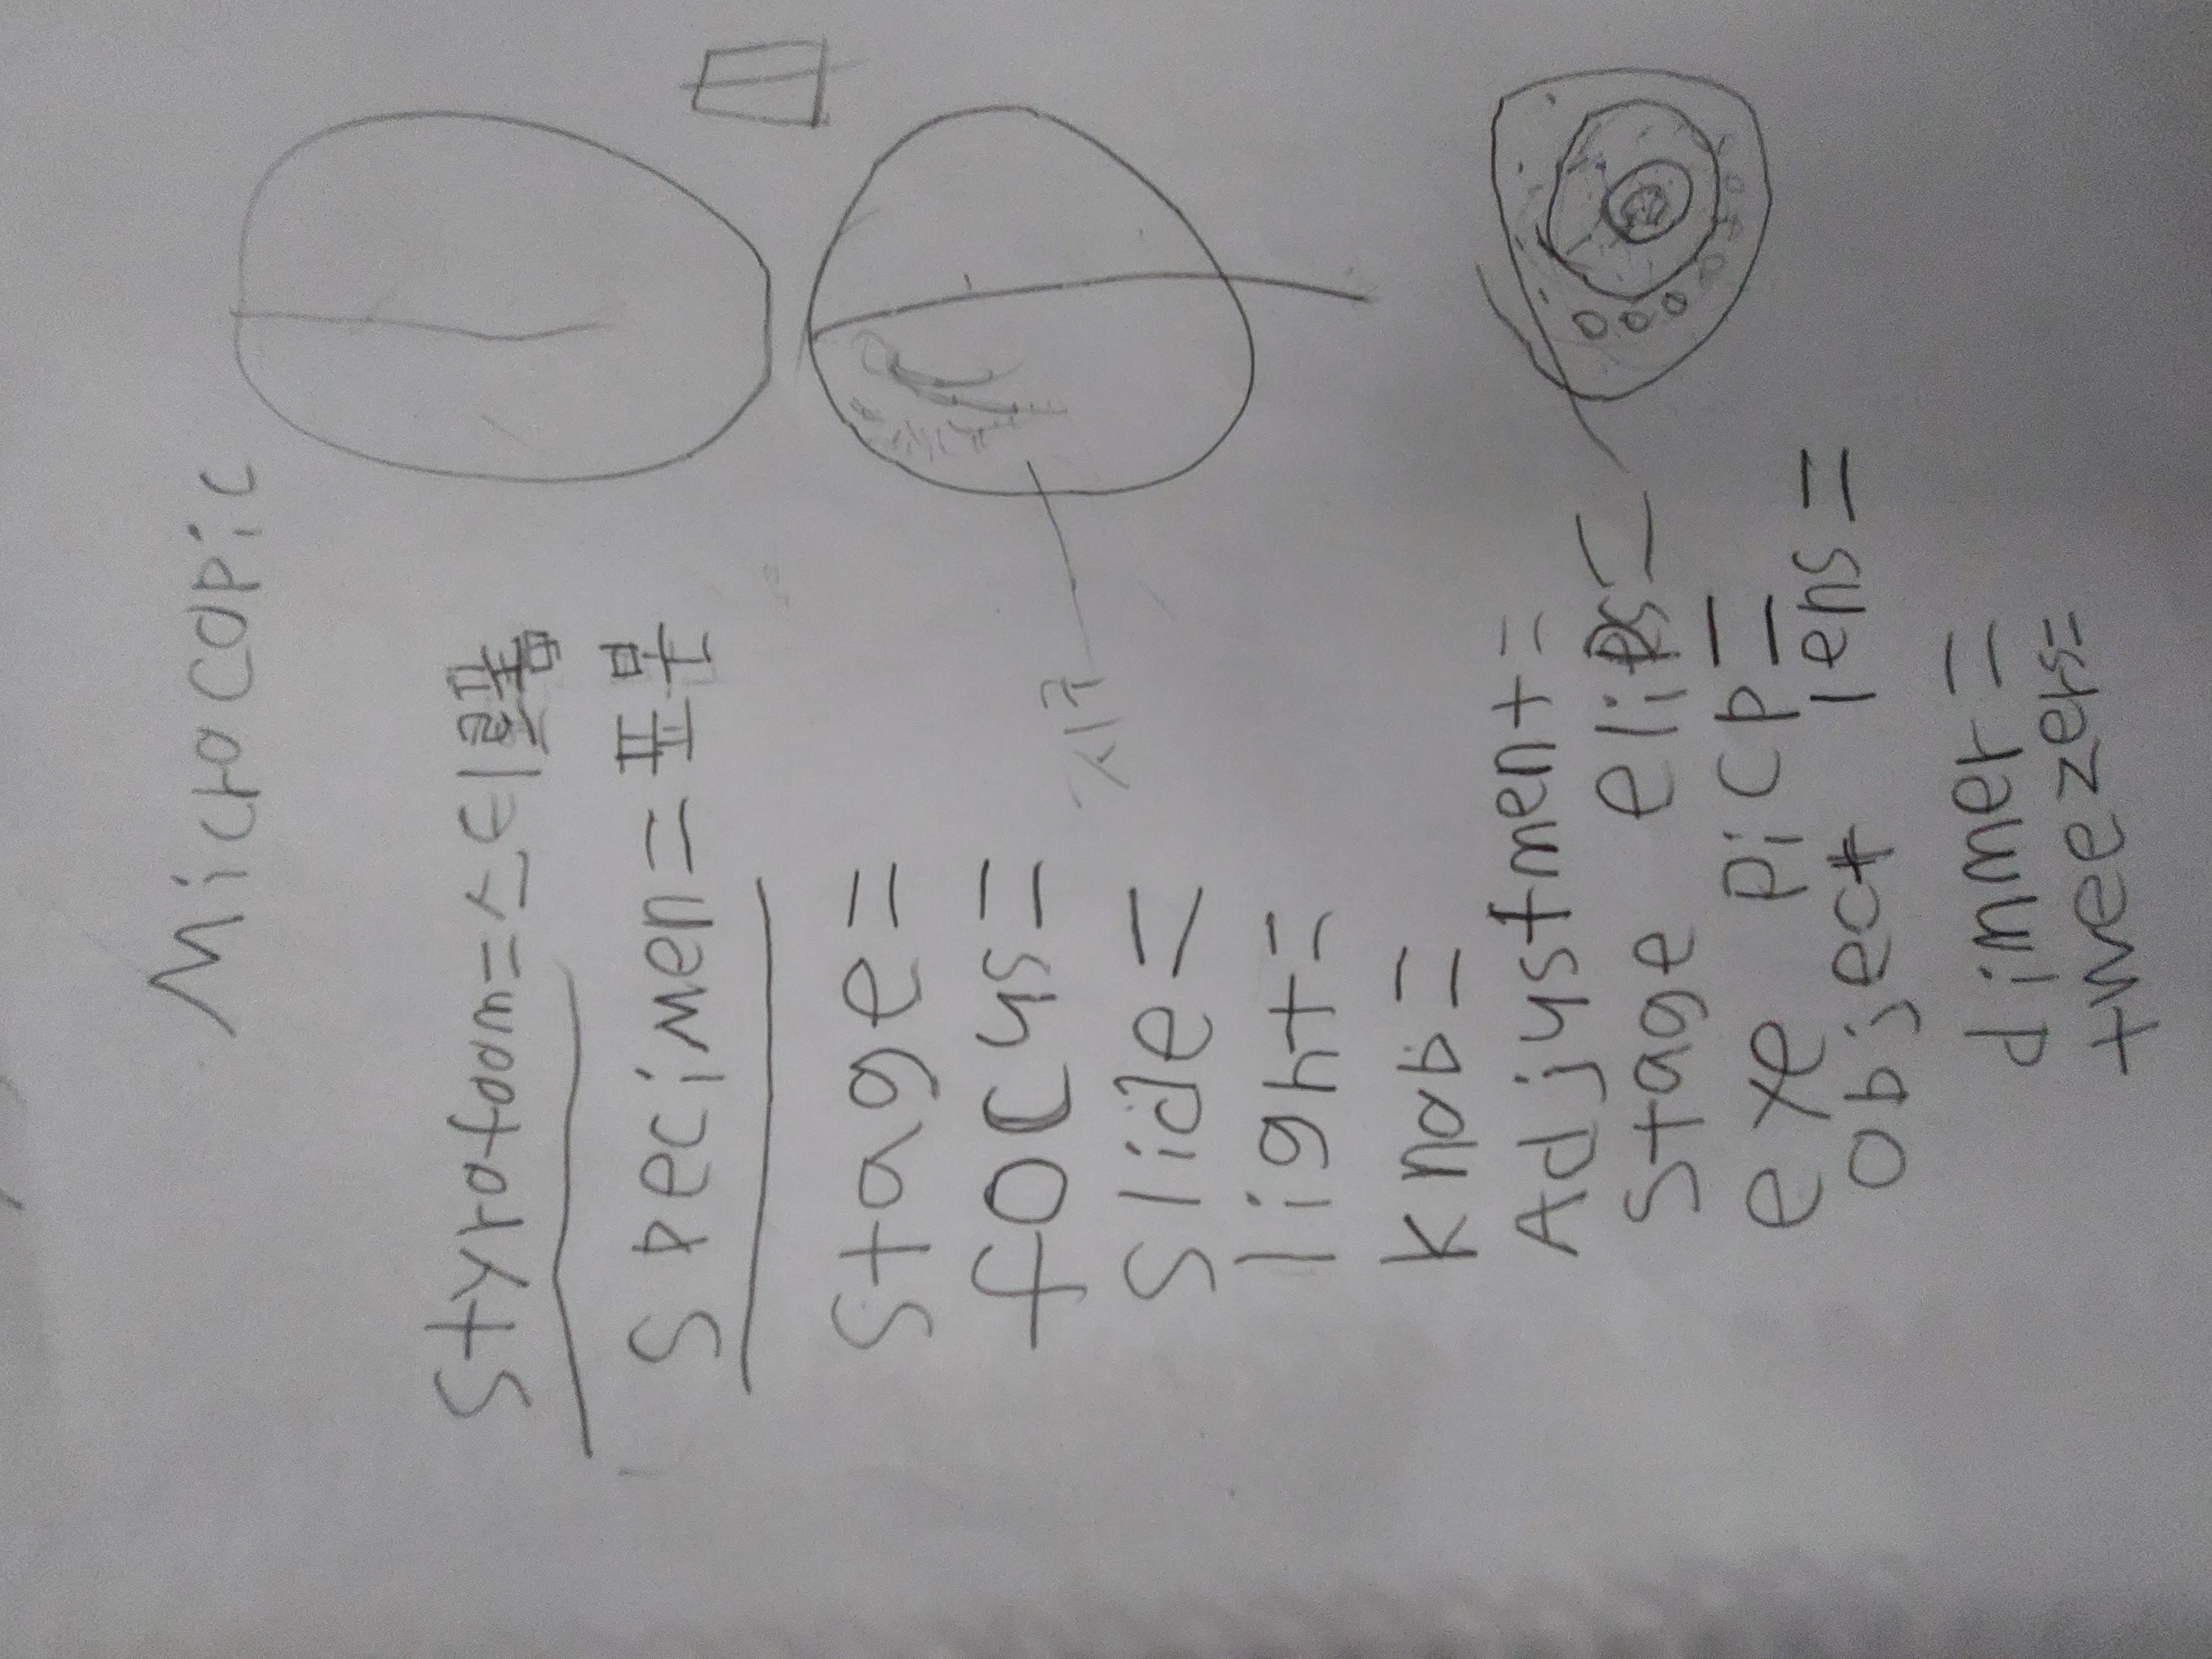 Microcopic
Styrofoam=스티로폼
Specimen=표본
Stage=
focys=
Slide=
light=
Knob=
Adjystment=
Stage elips=
exe picp=
object lens=
dimmer=
tweezers=